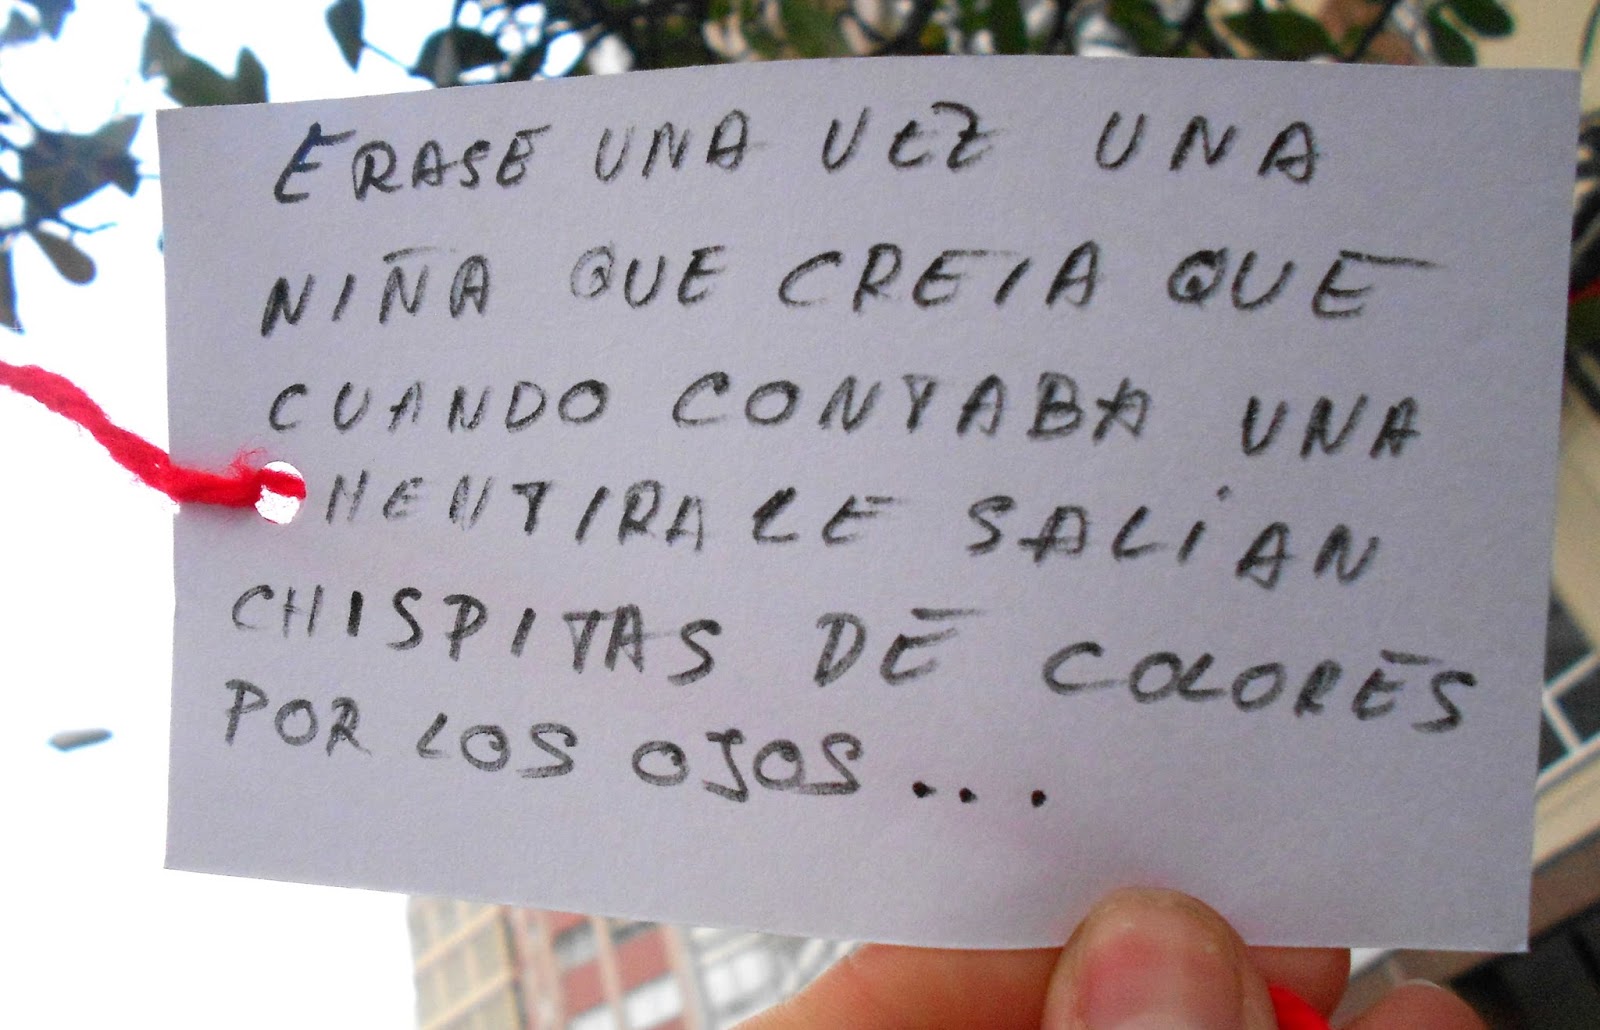 ERASE UNA VEZ UNA
NIÑA QUE CREIA QUE
CUANDO CONTABA UNA
MENTIRA LE SALÍAN
CHISPITAS DE COLORES
POR LOS OJOS...